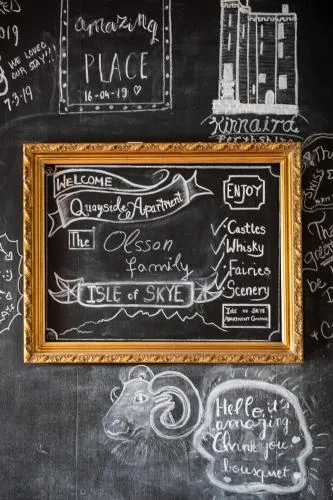 amazing
PLACE
16-04-19
WE LOVED
OUR STAY!!
7-3-19
Kinnaird
WELCOME
Quayside Apartment
The Olsson
family
ISLE of SKYE
ENJOY
Castles
Whisky
Fairies
Scenery
ISLE OF SKYE
Hello, it's
amazing
Thank you
bousquet